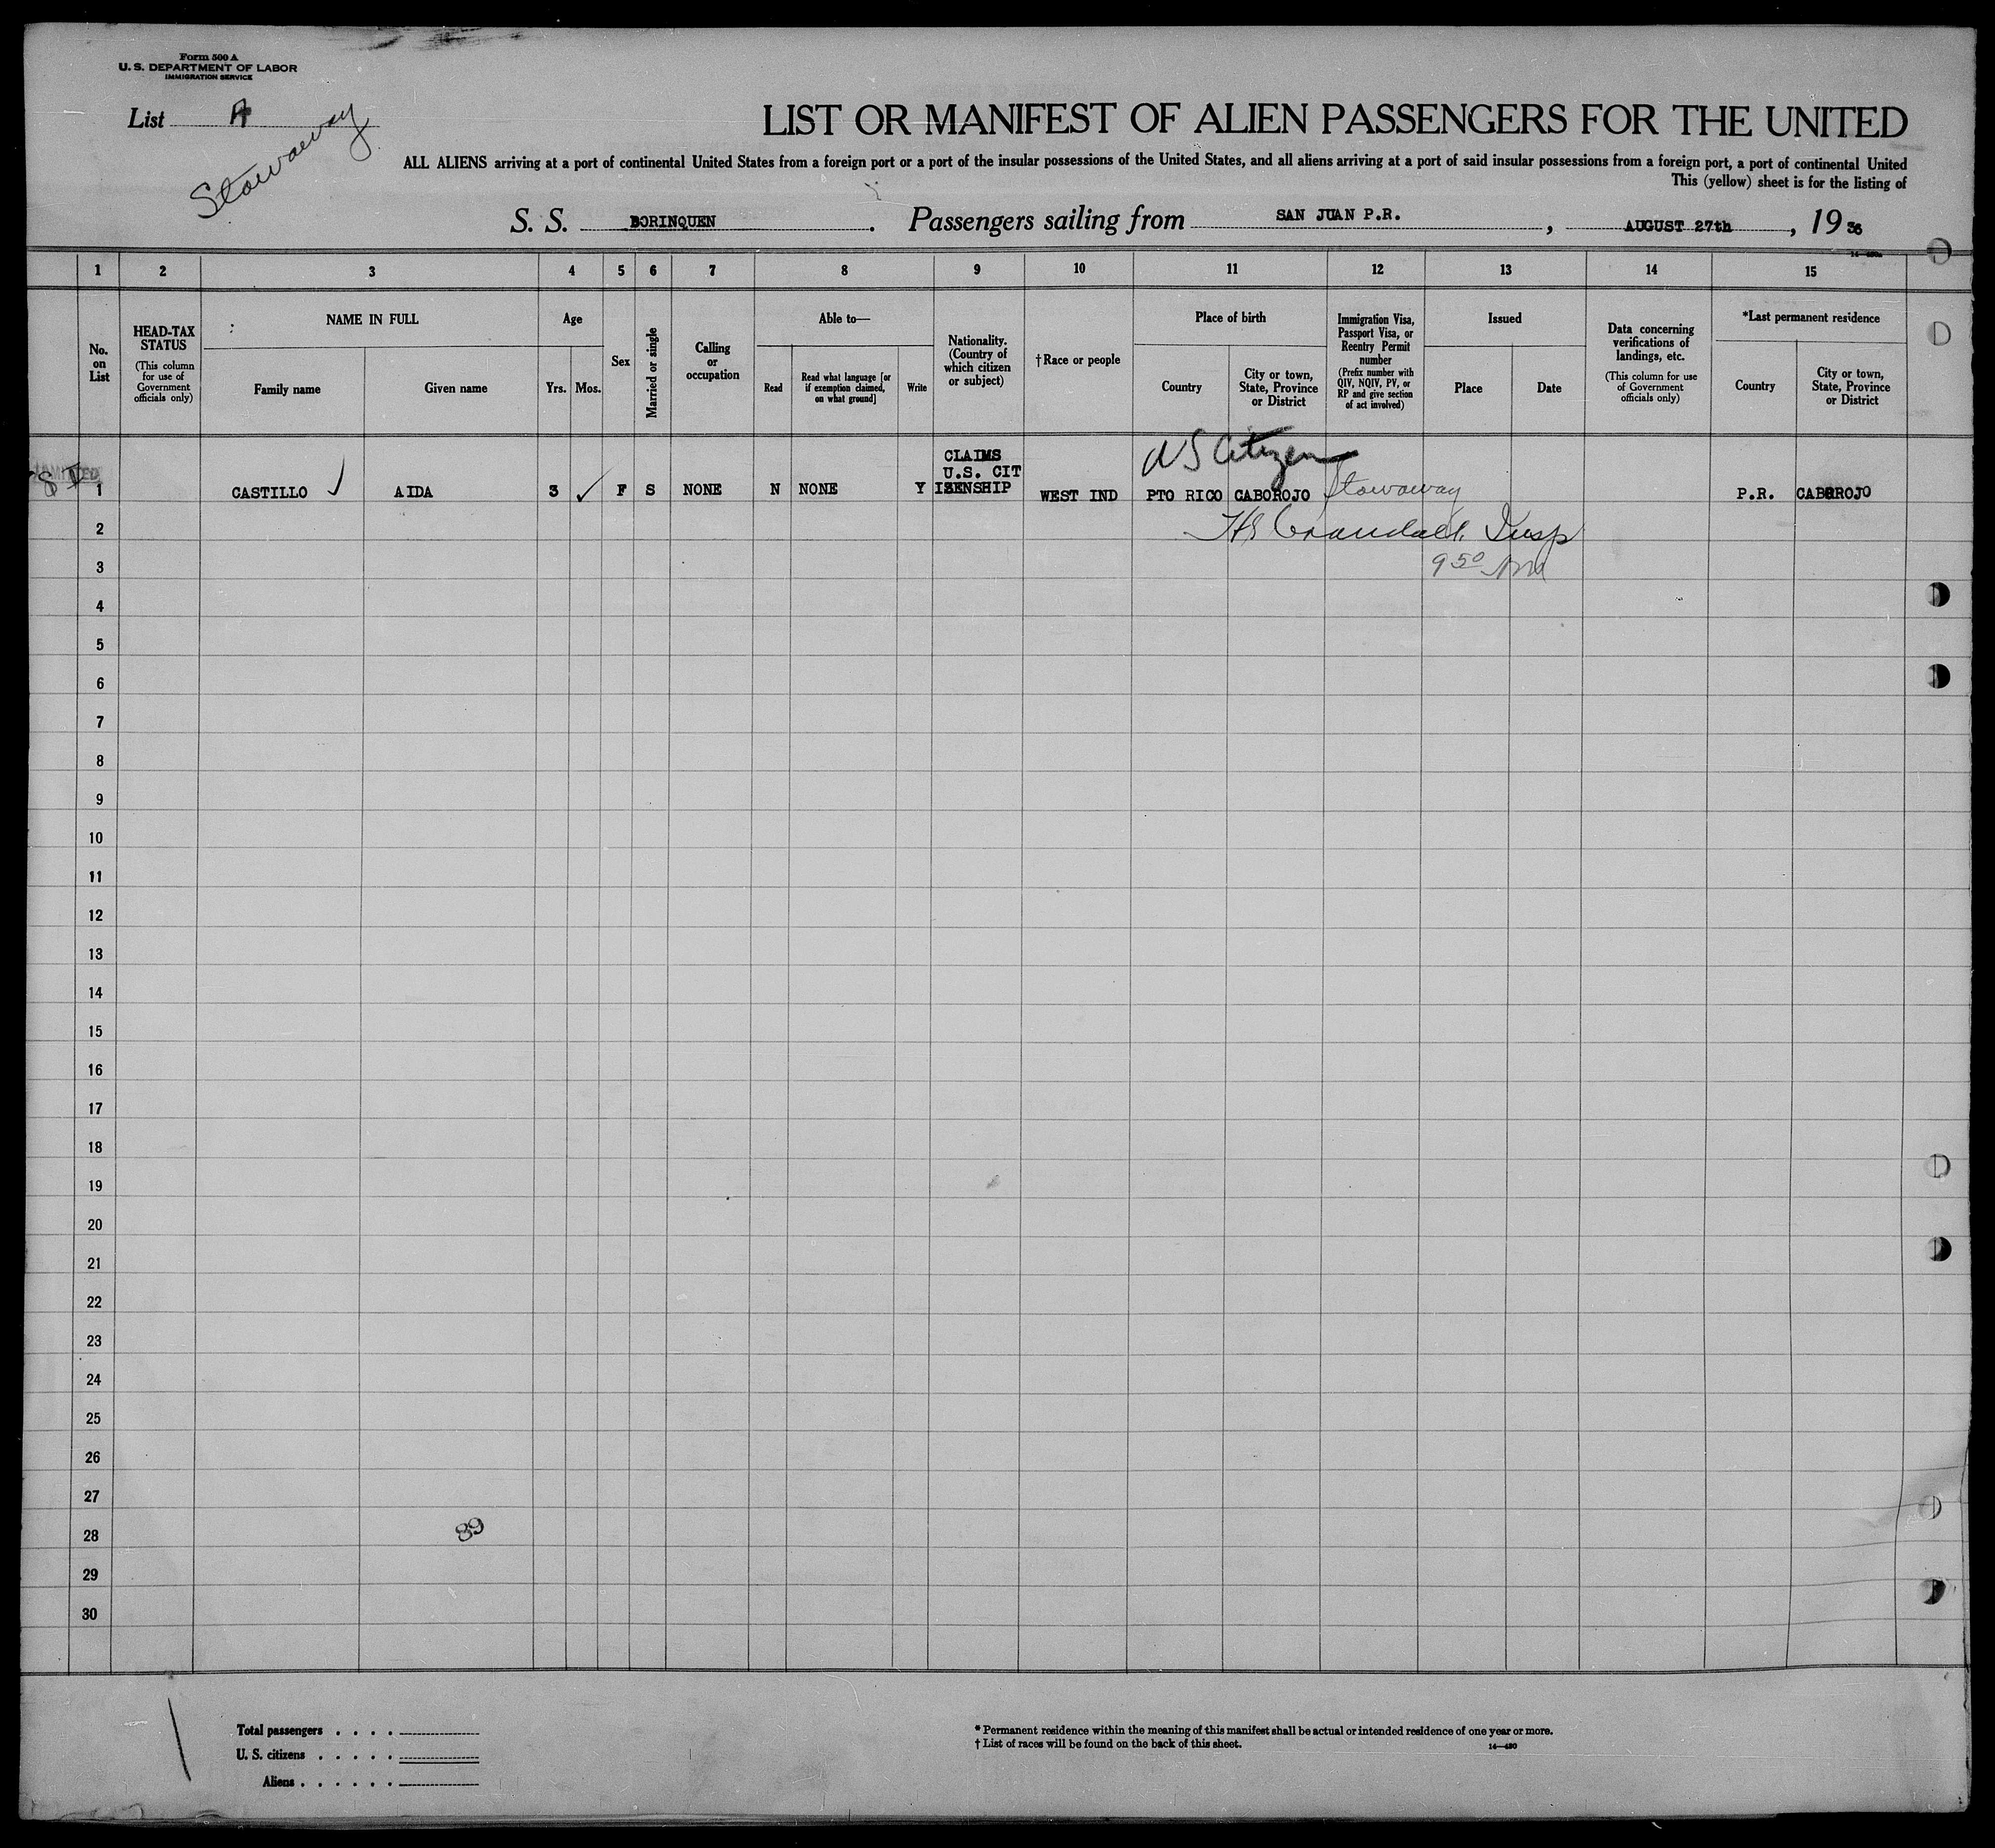 Form 500 A
U. S. DEPARTMENT OF LABOR
IMMIGRATION SERVICE
List A
Stowaway
LIST OR MANIFEST OF ALIEN PASSENGERS FOR THE UNITED
ALL ALIENS arriving at a port of continental United States from a foreign port or a port of the insular possessions of the United States, and all aliens arriving at a port of said insular possessions from a foreign port, a port of continental United
This (yellow) sheet is for the listing of
S. S. BORINQUEN. Passengers sailing from SAN JUAN P.R., AUGUST 27th, 1936
1 2 3 4 5 6 7 8 9 10 11 12 13 14 15
No. on List
HEAD-TAX STATUS
(This column for use of Government officials only)
NAME IN FULL
Family name
Given name
Age
Yrs. Mos.
Sex
Married or single
Calling or occupation
Able to—
Read
Read what language [or if exemption claimed, on what ground]
Write
Nationality. (Country of which citizen or subject)
†Race or people
Place of birth
Country
City or town, State, Province or District
Immigration Visa, Passport Visa, or Reentry Permit number
(Prefix number with QIV, NQIV, PV, or RP and give section of act involved)
Issued
Place
Date
Data concerning verifications of landings, etc.
(This column for use of Government officials only)
*Last permanent residence
Country
City or town, State, Province or District
US Citizen
CLAIMS
U.S. CIT
1 CASTILLO AIDA 3 F S NONE N NONE Y IZENSHIP WEST IND PTO RICO CABOROJO Stowaway P.R. CABOROJO
2 Insp
3 9 50 AM
4
5
6
7
8
9
10
11
12
13
14
15
16
17
18
19
20
21
22
23
24
25
26
27
28 89
29
30
Total passengers . . . .
U. S. citizens . . . . .
Aliens . . . . . .
* Permanent residence within the meaning of this manifest shall be actual or intended residence of one year or more.
† List of races will be found on the back of this sheet.
14—480